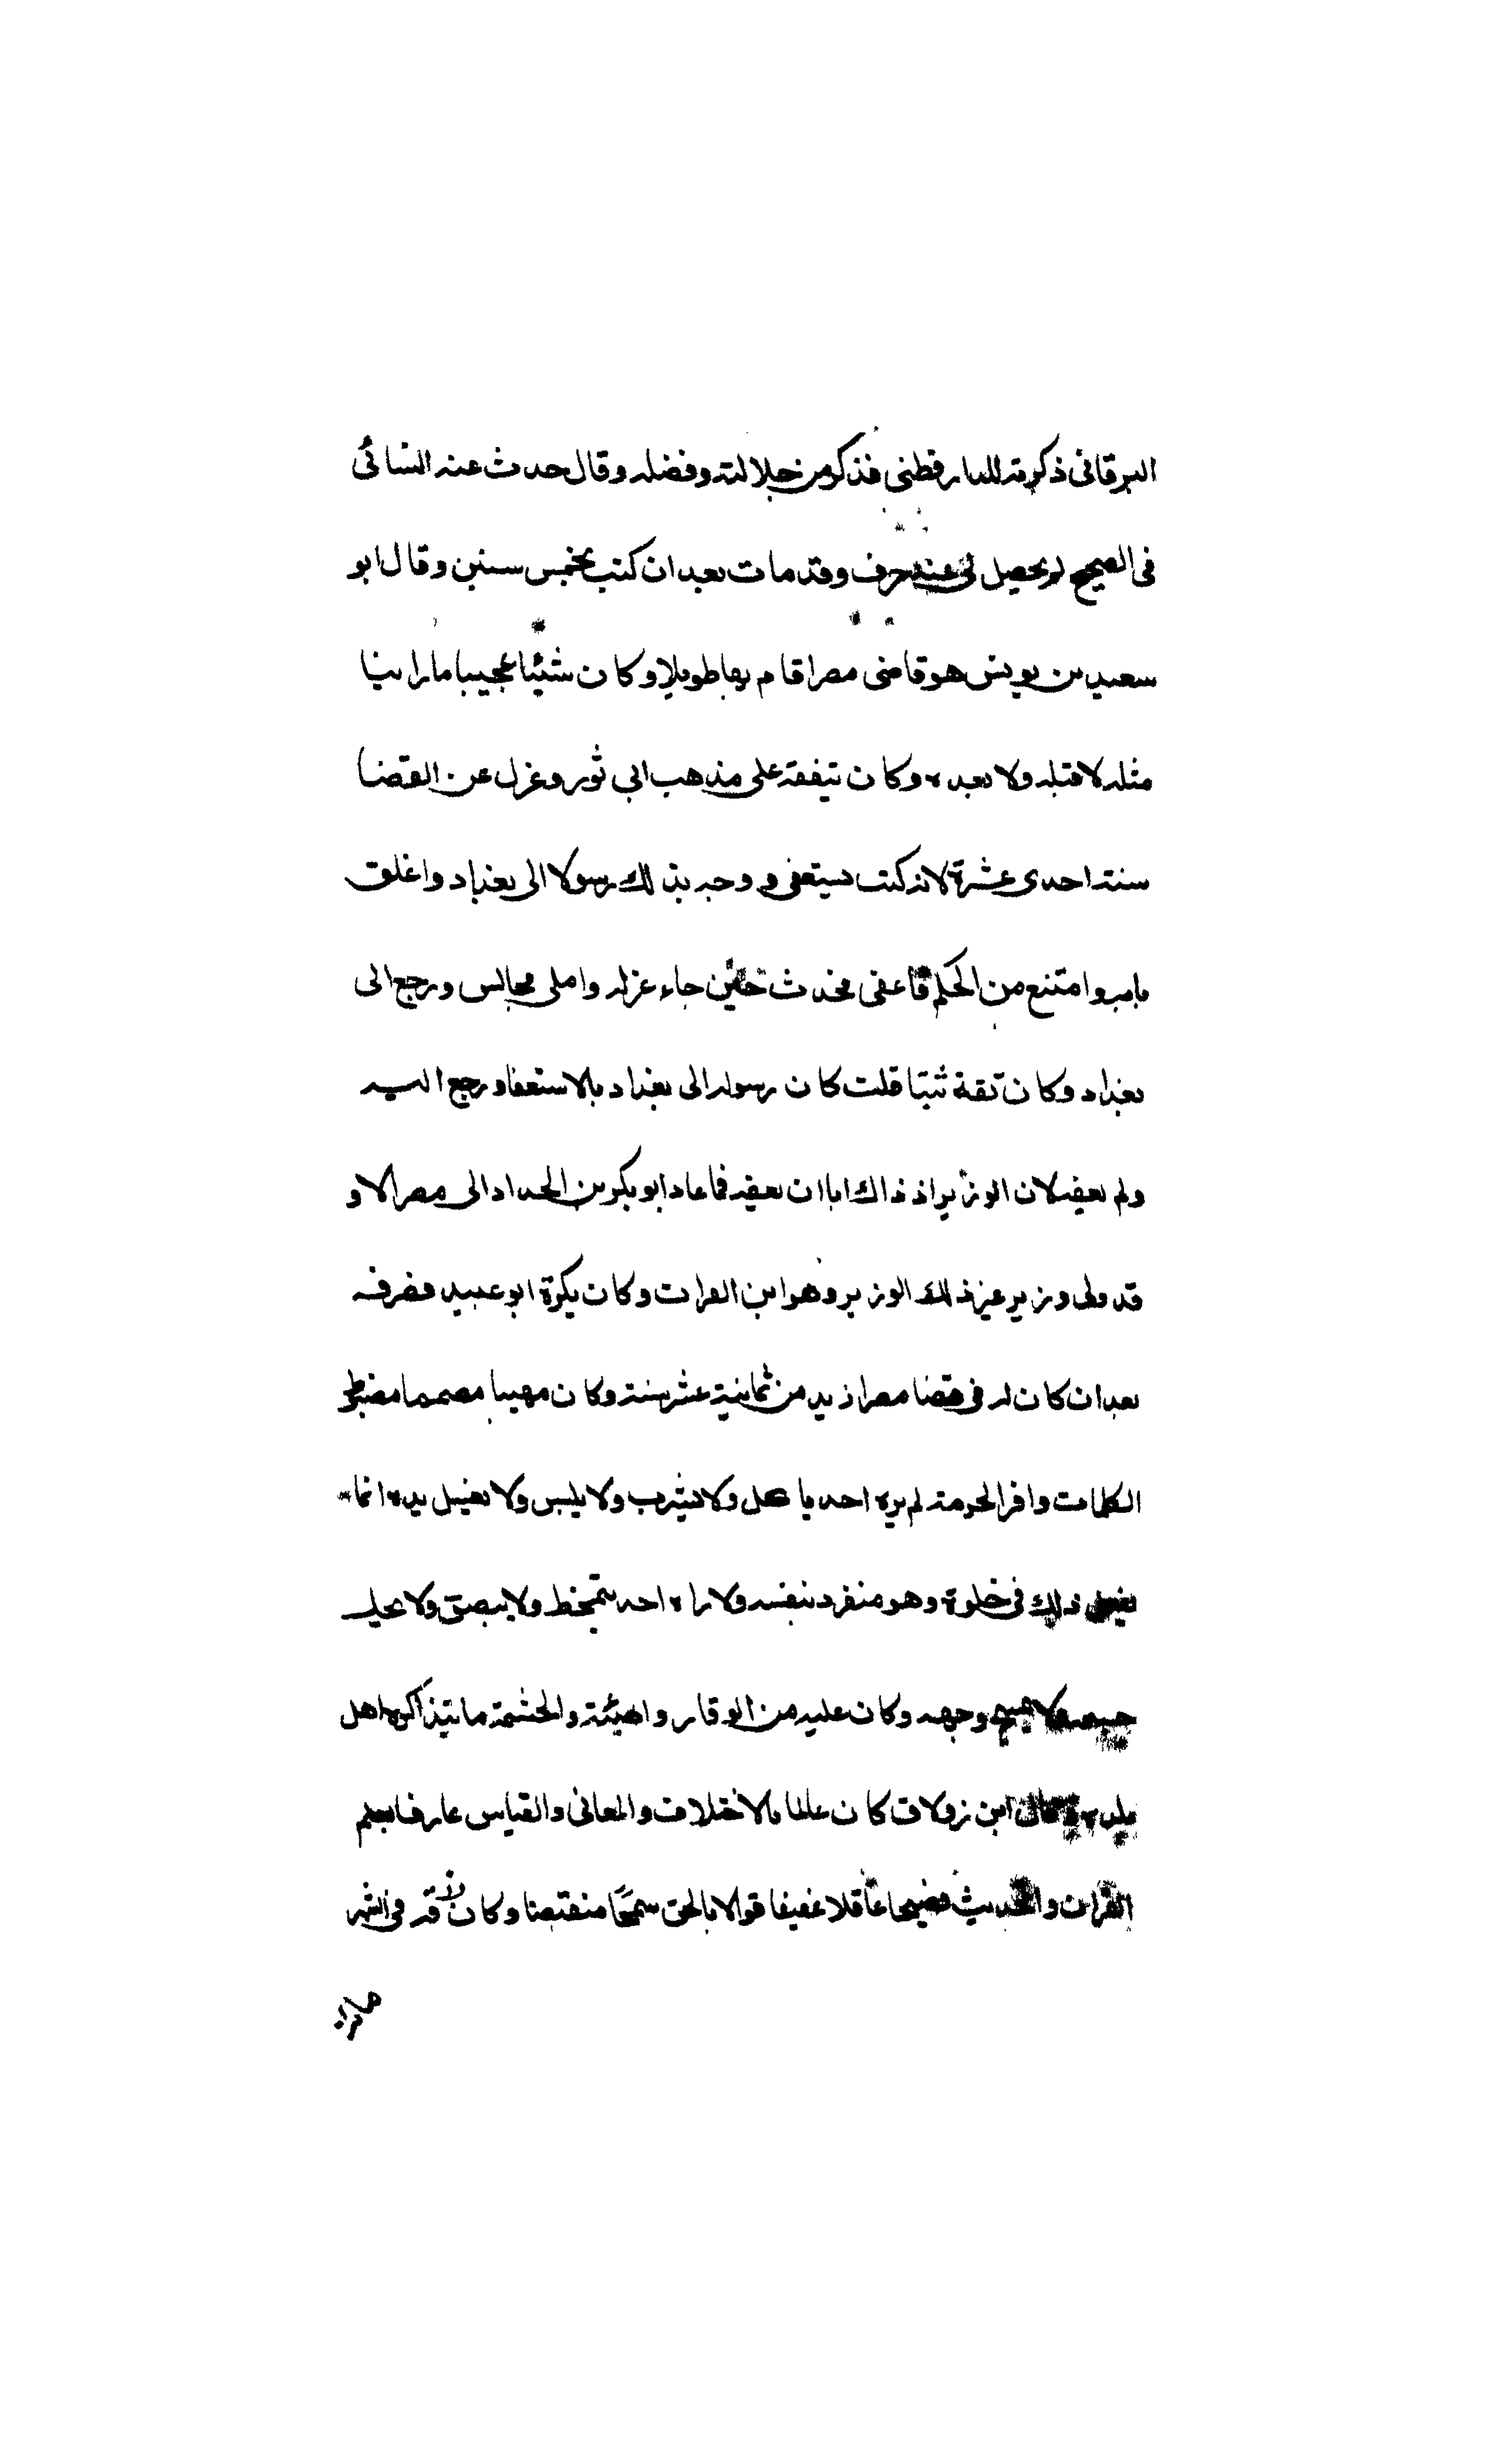 البرقانى ذكرته للدارقطنى فذكر من جلالته وفضله وقال حدث عنه النسائى
فى الصحيح لم يحصل لى عنه حرف وقد مات بعد ان كتب بخمس سنين وقال ابو
سعيد بن يونس هو قاضى مصر اقام بها طويلا وكان شيئا عجيبا ما راينا
مثله لا قبله ولا بعده وكان يتفقه على مذهب ابى ثور وعزل عن القضا
سنة احدى عشرة لانه كتب يستعفى ووجه بذلك رسولا الى بغداد واغلق
بابه وامتنع من الحكم فاعفى فحدث حين جاء عزله واملى مجالس ورجع الى
بغداد وكان ثقة ثبتا قلت كان رسوله الى بغداد بالاستعفا ورجع اليه
ولم يعفه لان الوزير اذ ذاك ابا ان يعفيه فما عاد ابو بكر بن الحداد الى مصر الا و
قد ولى وزير غير ذلك الوزير وهو ابن الفرات وكان يكره ابو عبيد فصرفه
بعد ان كان له فى قضا مصر ازيد من ثمانية عشر سنة وكان مهيبا مصمما مضبط
الكلمات وافر الحرمة لم يره احد ياكل ولا يشرب ولا يلبس ولا يغسل يده انما
يفعل ذلك فى خلوة وهو منفرد بنفسه ولا راه احد يتمخط ولا يبصق ولا يحك
جسمه ولا يمسح وجهه وكان عليه من الوقار والهيئة والحشمة ما يتذاكرها اهل
بلده وقال ابن زولاق كان عالما بالاختلاف والمعانى والقياس عارفا بعلم
القران والحديث فصيحا عاقلا عفيفا قوالا بالحق سمحا منقبضا وكان رزقه فى الشهر